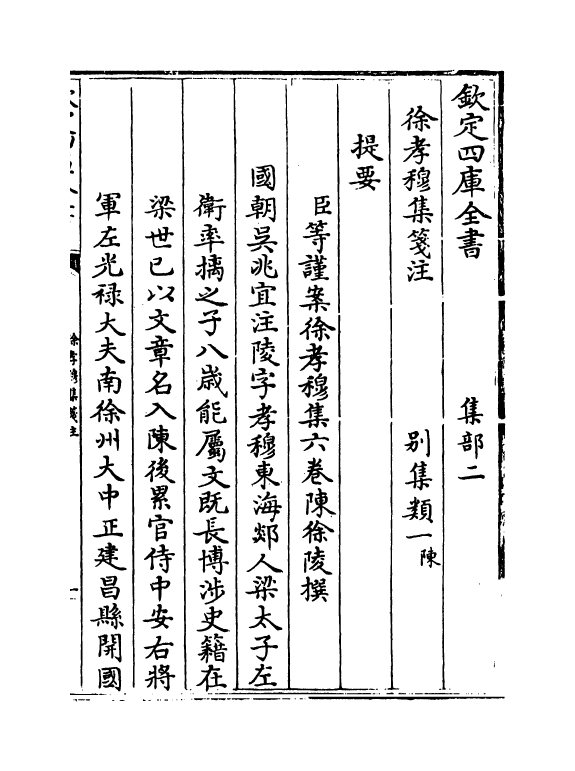 欽定四庫全書 集部二
徐孝穆集箋注 別集類一陳
提要
臣等謹案徐孝穆集六卷陳徐陵撰
國朝吳兆宜注陵字孝穆東海郯人梁太子左
衛率摛之子八歲能屬文既長博涉史籍在
梁世已以文章名入陳後累官侍中安右將
軍左光祿大夫南徐州大中正建昌縣開國
徐孝穆集箋注